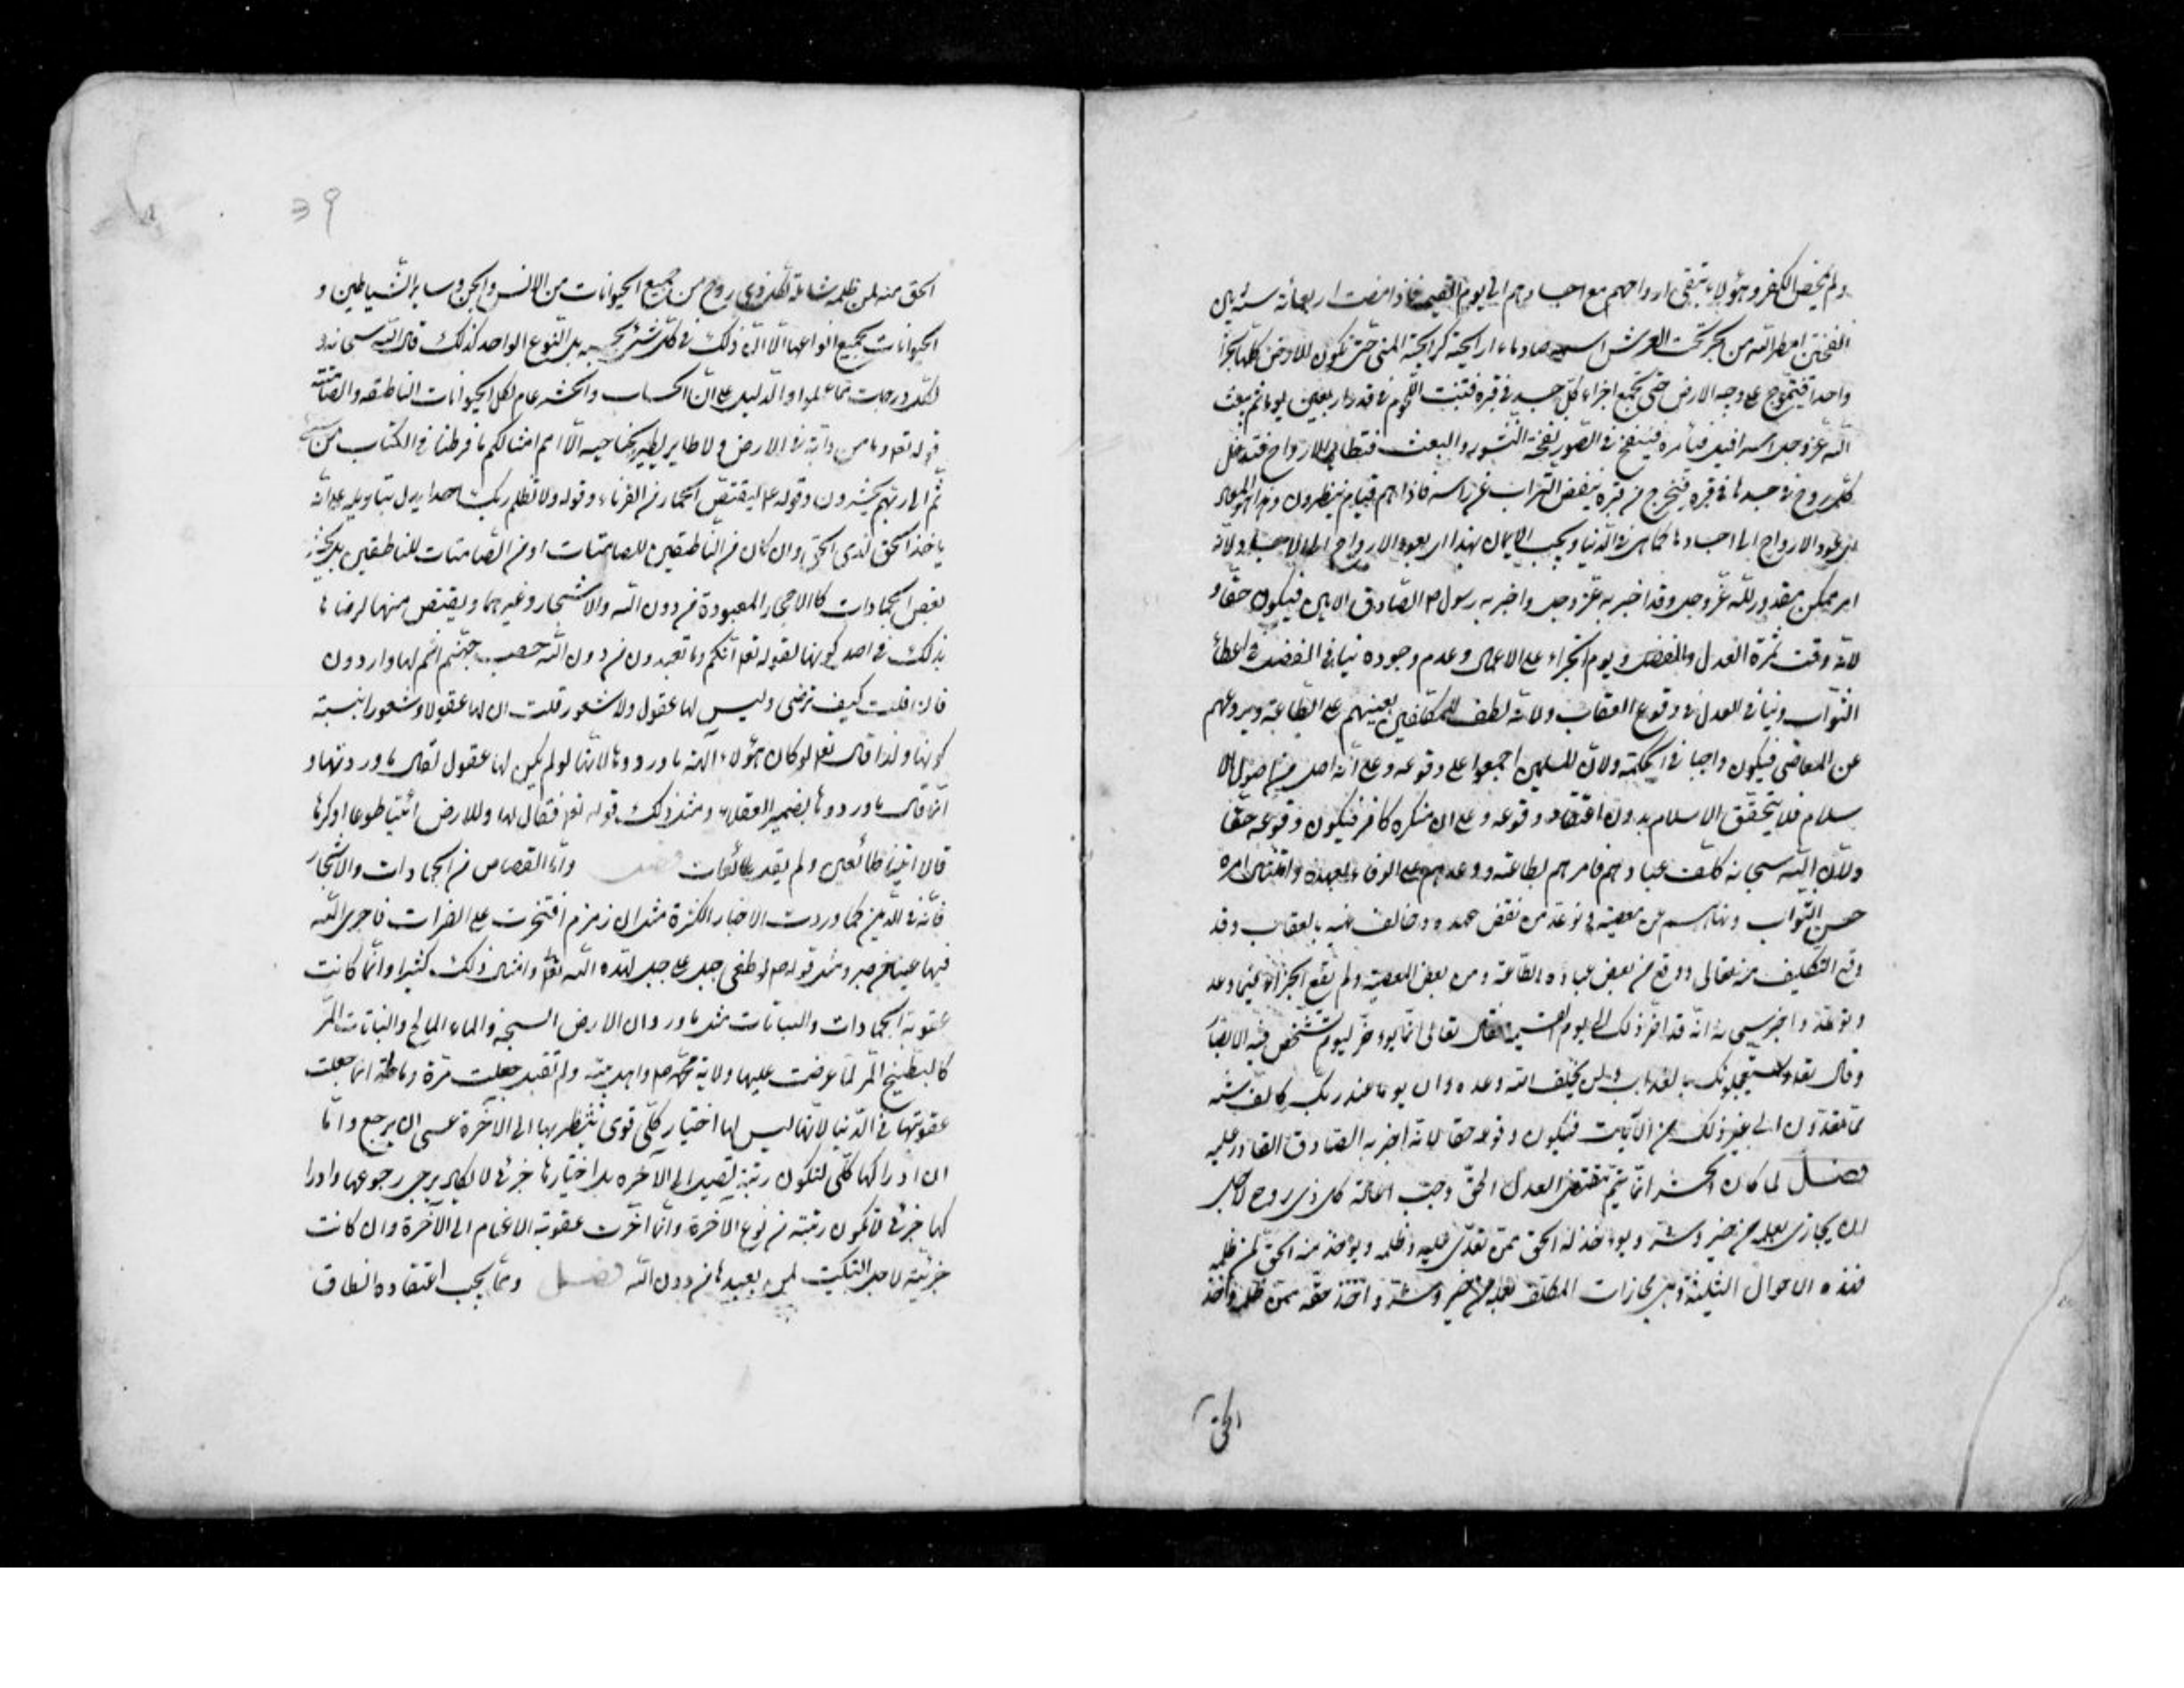 ولم يمحض الكفر وهؤلاء تبقى ارواحهم مع اجسادهم الى يوم القيمة فاذا مضت اربعمائة سنة بين
النفختين امطر الله من بحر تحت العرش اسمه صاد ماء رايحته كرايحة المنى حتى تكون الارض كلها بحرا
واحدا فيتموج على وجه الارض حتى تجتمع اجزاء كل جسد فى قبره فتنبت اللحوم فى قدر اربعين يوما ثم يبعث
الله عز وجل اسرافيل فيأمره فينفخ فى الصور نفخة النشور والبعث فتطاير الارواح فتدخل
كل روح فى جسدها فى قبره فتخرج من قبره ينفض التراب عن رأسه فاذا هم قيام ينظرون وهذا هو المعاد
اى عود الارواح الى اجسادها كما هى فى الدنيا ويجب الايمان بهذا اى بعود الارواح الى الاجساد ولانه
امر ممكن مقدور لله عز وجل وقد اخبر به عز وجل واخبر به رسوله ص الصادق الامين فيكون حقا و
لانه وقت ثمرة العدل والفضل ويوم الجزاء على الاعمال وعدم وجوده ينافى الفضل فى اعطاء
الثواب وينافى العدل فى وقوع العقاب ولانه لطف للمكلفين يعينهم على الطاعة ويردعهم
عن المعاصى فيكون واجبا فى الحكمة ولان المسلمين اجمعوا على وقوعه وعلى انه اصل من اصول الا
سلام فلا يتحقق الاسلام بدون اعتقاد وقوعه وعلى ان منكره كافر فيكون وقوعه حقا
ولان الله سبحانه كلف عباده فامرهم بطاعته ووعدهم على الوفاء بعهده وامتثال امره
حسن الثواب ونهاهم عن معصيته وتوعد من نقض عهده وخالف نهيه بالعقاب وقد
وقع التكليف منه تعالى ووقع من بعض عباده الطاعة ومن بعض المعصية ولم يقع الجزاء فيما وعد
وتوعد واخبر سبحانه انه قد اخر ذلك الى يوم القيمة فقال تعالى انما يؤخر ليوم تشخص فيه الابصار
وقال تعالى ويستعجلونك بالعذاب ولن يخلف الله وعده وان يوما عند ربك كالف سنة
مما تعدون الى غير ذلك من الآيات فيكون وقوعه حقا لانه اخبر به الصادق القادر عليه
فصل لما كان الحشر انما يتم بمقتضى العدل الحق وجب اعادة كل ذى روح لاجل
ان يجازى بعلمه من خير وشر ويؤخذ له الحق ممن تعدى عليه وظلمه ويؤخذ منه الحق لمن ظلمه
فهذه الاحوال الثلثة وهى مجازات المكلف بعمله من خير وشر واخذ حقه ممن ظلمه واخذ
الحق
39
الحق منه لمن ظلمه شاملة لكل ذى روح من جميع الحيوانات من الانس والجن وساير الشياطين و
الحيوانات بجميع انواعها الا ان ذلك فى كل شئ بحسبه بل النوع الواحد كذلك قال الله سبحانه و
لكل درجات مما عملوا والدليل على ان الحساب والحشر عام لكل الحيوانات الناطقة والصامتة
قوله تعالى وما من دابة فى الارض ولا طاير يطير بجناحيه الا امم امثالكم ما فرطنا فى الكتاب من شئ
ثم الى ربهم يحشرون وقوله ع ليقتص الجماء من القرناء وقوله ولا يظلم ربك احدا يدل بتاويله على انه
ياخذ الحق لذى الحق وان كان من الناطقين للصامتات او من الصامتات للناطقين بل يحشر
بعض الجمادات كالاحجار المعبودة من دون الله والاشجار وغيرهما ويقتص منها لرضاها
بذلك فى اصل كونها لقوله تعالى انكم وما تعبدون من دون الله حصب جهنم انتم لها واردون
فان قلت كيف ترضى وليس لها عقول ولا شعور قلت ان لها عقولا وشعورا بنسبة
كونها ولذا قال تعالى لو كان هؤلاء آلهة ما وردوها لانها لو لم يكن لها عقول لقال ما وردتها و
انما قال ما وردوها بضمير العقلاء ومثل ذلك قوله تعالى فقال لها وللارض ائتيا طوعا او كرها
قالا اتينا طائعين ولم يقل طائعات فصل واما القصاص من الجمادات والاشجار
فانه فى الدنيا كما وردت الاخبار الكثرة مثل ان زمزم افتخرت على الفرات فاجرى الله
فيها عينا من صبر ومثل قوله ص لو طغى جبل على جبل لهده الله تعالى وامثال ذلك كثيرا وانما كانت
عقوبة الجمادات والنباتات مثل ما ورد ان الارض السبخة والماء المالح والنباتات المر
كالبطيخ المر لما عرضت عليها ولاية محمد ص واهل بيته ولم تقبل جعلت مرة ومالحة انما جعلت
عقوبتها فى الدنيا لانها ليس لها اختيار كلى قوى ينتظر بها الى الآخرة عسى ان يرجع وانما
ان ادراكها كلى لتكون رتبته تصل الى الآخره بل اختيارها جزئى لا يكاد يرجى رجوعها وادرا
كها جزئى لا تكون رتبته من نوع الآخرة وانما اخرت عقوبة الاغنام الى الآخرة وان كانت
جزئية لاجل التبكيت لمن يعبدها من دون الله فصل ومما يجب اعتقاده انطاق